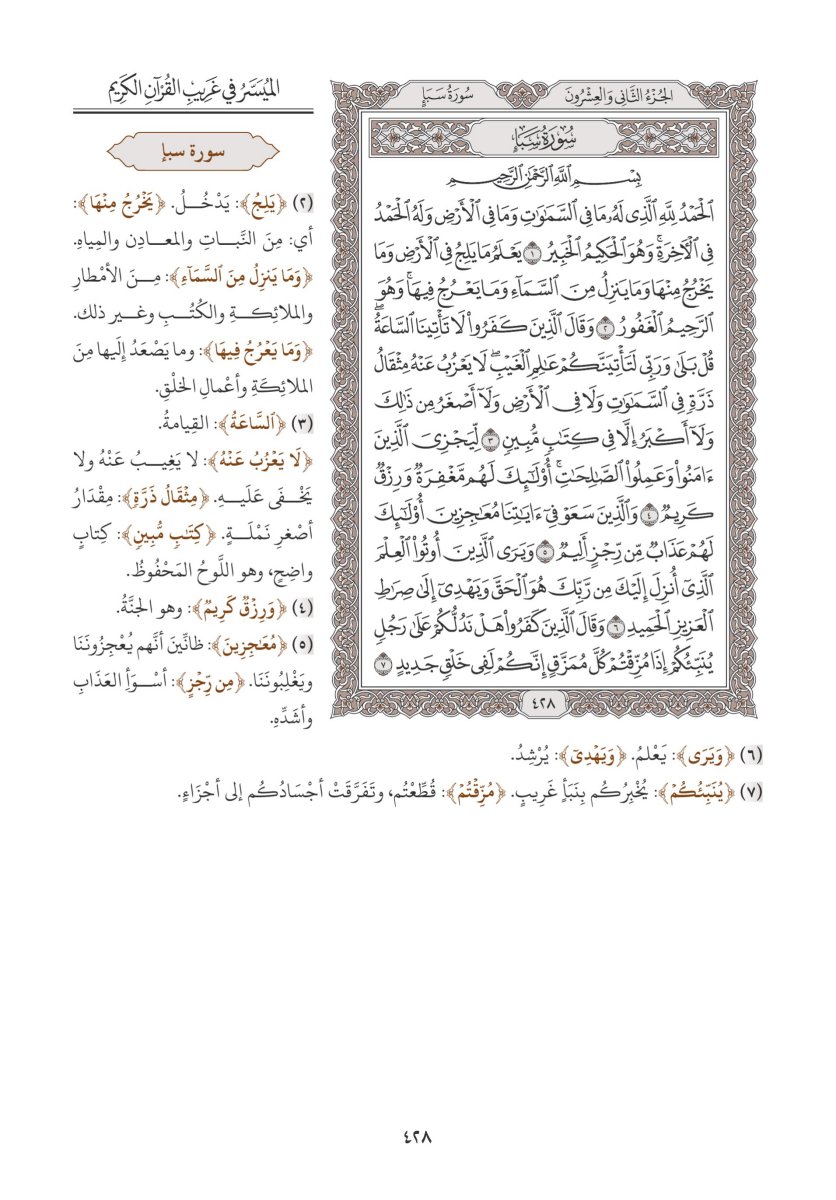 الجُزْءُ الثَّانِي وَالعِشْرُونَ
سُورَةُ سَبَإٍ
سُورَةُ سَبَإٍ
بِسْمِ ٱللَّهِ ٱلرَّحْمَٰنِ ٱلرَّحِيمِ
ٱلْحَمْدُ لِلَّهِ ٱلَّذِى لَهُۥ مَا فِى ٱلسَّمَٰوَٰتِ وَمَا فِى ٱلْأَرْضِ وَلَهُ ٱلْحَمْدُ
فِى ٱلْءَاخِرَةِۚ وَهُوَ ٱلْحَكِيمُ ٱلْخَبِيرُ ١ يَعْلَمُ مَا يَلِجُ فِى ٱلْأَرْضِ وَمَا
يَخْرُجُ مِنْهَا وَمَا يَنزِلُ مِنَ ٱلسَّمَآءِ وَمَا يَعْرُجُ فِيهَاۚ وَهُوَ
ٱلرَّحِيمُ ٱلْغَفُورُ ٢ وَقَالَ ٱلَّذِينَ كَفَرُوا۟ لَا تَأْتِينَا ٱلسَّاعَةُۖ
قُلْ بَلَىٰ وَرَبِّى لَتَأْتِيَنَّكُمْ عَٰلِمِ ٱلْغَيْبِۖ لَا يَعْزُبُ عَنْهُ مِثْقَالُ
ذَرَّةٍ فِى ٱلسَّمَٰوَٰتِ وَلَا فِى ٱلْأَرْضِ وَلَآ أَصْغَرُ مِن ذَٰلِكَ
وَلَآ أَكْبَرُ إِلَّا فِى كِتَٰبٍ مُّبِينٍ ٣ لِّيَجْزِىَ ٱلَّذِينَ
ءَامَنُوا۟ وَعَمِلُوا۟ ٱلصَّٰلِحَٰتِۚ أُو۟لَٰٓئِكَ لَهُم مَّغْفِرَةٌ وَرِزْقٌ
كَرِيمٌ ٤ وَٱلَّذِينَ سَعَوْ فِىٓ ءَايَٰتِنَا مُعَٰجِزِينَ أُو۟لَٰٓئِكَ
لَهُمْ عَذَابٌ مِّن رِّجْزٍ أَلِيمٌ ٥ وَيَرَى ٱلَّذِينَ أُوتُوا۟ ٱلْعِلْمَ
ٱلَّذِىٓ أُنزِلَ إِلَيْكَ مِن رَّبِّكَ هُوَ ٱلْحَقَّ وَيَهْدِىٓ إِلَىٰ صِرَٰطِ
ٱلْعَزِيزِ ٱلْحَمِيدِ ٦ وَقَالَ ٱلَّذِينَ كَفَرُوا۟ هَلْ نَدُلُّكُمْ عَلَىٰ رَجُلٍ
يُنَبِّئُكُمْ إِذَا مُزِّقْتُمْ كُلَّ مُمَزَّقٍ إِنَّكُمْ لَفِى خَلْقٍ جَدِيدٍ ٧
٤٢٨
المُيَسَّرُ في غَرِيبِ القُرْآنِ الكَرِيم
سورة سبإ
(٢) ﴿يَلِجُ﴾: يَدْخُلُ. ﴿يَخْرُجُ مِنْهَا﴾:
أي: مِنَ النَّباتِ والمعادِنِ والمِياهِ.
﴿وَمَا يَنزِلُ مِنَ ٱلسَّمَآءِ﴾: مِنَ الأمْطارِ
والملائِكةِ والكُتُبِ وغيرِ ذلك.
﴿وَمَا يَعْرُجُ فِيهَا﴾: وما يَصْعَدُ إليها مِنَ
الملائِكَةِ وأعْمالِ الخلْقِ.
(٣) ﴿ٱلسَّاعَةُ﴾: القِيامةُ.
﴿لَا يَعْزُبُ عَنْهُ﴾: لا يَغِيبُ عَنْهُ ولا
يَخْفَى عَلَيهِ. ﴿مِثْقَالُ ذَرَّةٍ﴾: مِقْدَارُ
أصْغرِ نَمْلَةٍ. ﴿كِتَٰبٍ مُّبِينٍ﴾: كِتابٍ
واضِحٍ، وهو اللَّوحُ المَحْفُوظُ.
(٤) ﴿وَرِزْقٌ كَرِيمٌ﴾: وهو الجنَّةُ.
(٥) ﴿مُعَٰجِزِينَ﴾: ظانِّينَ أنَّهم يُعْجِزُونَنَا
ويَغْلِبُونَنَا. ﴿مِن رِّجْزٍ﴾: أسْوَأِ العَذَابِ
وأشَدِّهِ.
(٦) ﴿وَيَرَى﴾: يَعْلمُ. ﴿وَيَهْدِىٓ﴾: يُرْشِدُ.
(٧) ﴿يُنَبِّئُكُمْ﴾: يُخْبِرُكُم بِنَبَأٍ غَرِيبٍ. ﴿مُزِّقْتُمْ﴾: قُطِّعْتُم، وتَفَرَّقَتْ أجْسَادُكُم إلى أجْزَاءٍ.
٤٢٨